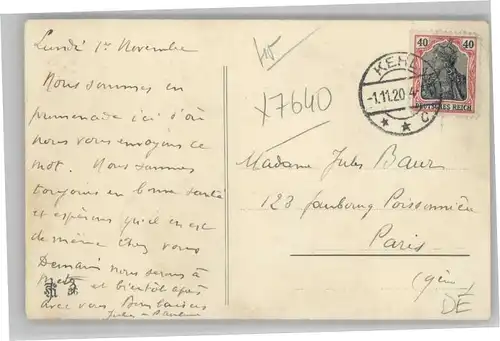 Lundi 1er Novembre
Nous sommes en
promenade ici d'où
nous vous envoyons ce
mot. Nous sommes
toujours en bonne santé
et espérons qu'il en est
de même chez vous
Demain nous serons à
Metz et bientôt après
avec vous Bons baisers
Jules
X7640
40 40
DEUTSCHES REICH
KEHL
-1.11.20.4
* * c
Madame Jules Baur
123 faubourg Poissonnière
Paris
(9ème)
DE